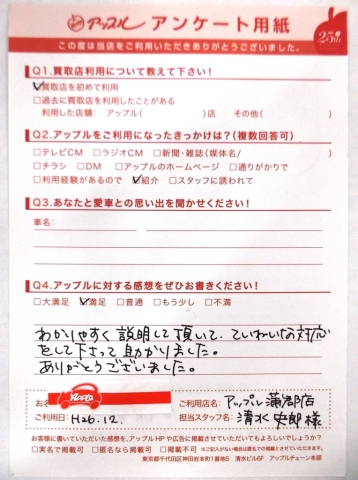 アップル アンケート用紙
25th
この度は当店をご利用いただきありがとうございました。
Q1.買取店利用について教えて下さい!
☑買取店を初めて利用
□過去に買取店を利用したことがある
利用した店舗： アップル( )店 その他( )
Q2.アップルをご利用になったきっかけは?(複数回答可)
□テレビCM □ラジオCM □新聞・雑誌(媒体名/ )
□チラシ □DM □アップルのホームページ □通りがかりで
□利用経験があるので ☑紹介 □スタッフに誘われて
Q3.あなたと愛車との思い出を聞かせください!
車名：
Q4.アップルに対する感想をぜひお書きください!
□大満足 ☑満足 □普通 □もう少し □不満
わかりやすく説明して頂いて、ていねいな対応
をして下さって助かりました。
ありがとうございました。
お名 ご利用店名：アップル蒲郡店
ご利用日：H26.12. 担当スタッフ名：清水 史郎 様
お客様に書いていただいた感想を、アップルHPや広告に掲載させていただいてもよろしいでしょうか?
□実名で掲載可 □匿名なら掲載可 □掲載不可
東京都千代田区神田佐末町1番地5 清水ビル6F アップルチェーン本部